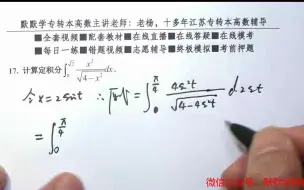 默默学专转本高数主讲老师:老杨,十多年江苏专转本高数辅导
■全套视频■配套教材■在线直播■在线答疑■在线模考
■每日一练■错题视频■志愿辅导■终极模拟■考前押题
17. 计算定积分∫₀^√2 x²/√(4−x²) dx.
令 x=2sint ∴ 原式=∫₀^(π/4) 4s²t/√(4−4s²t) d2st
=∫₀^(π/4)